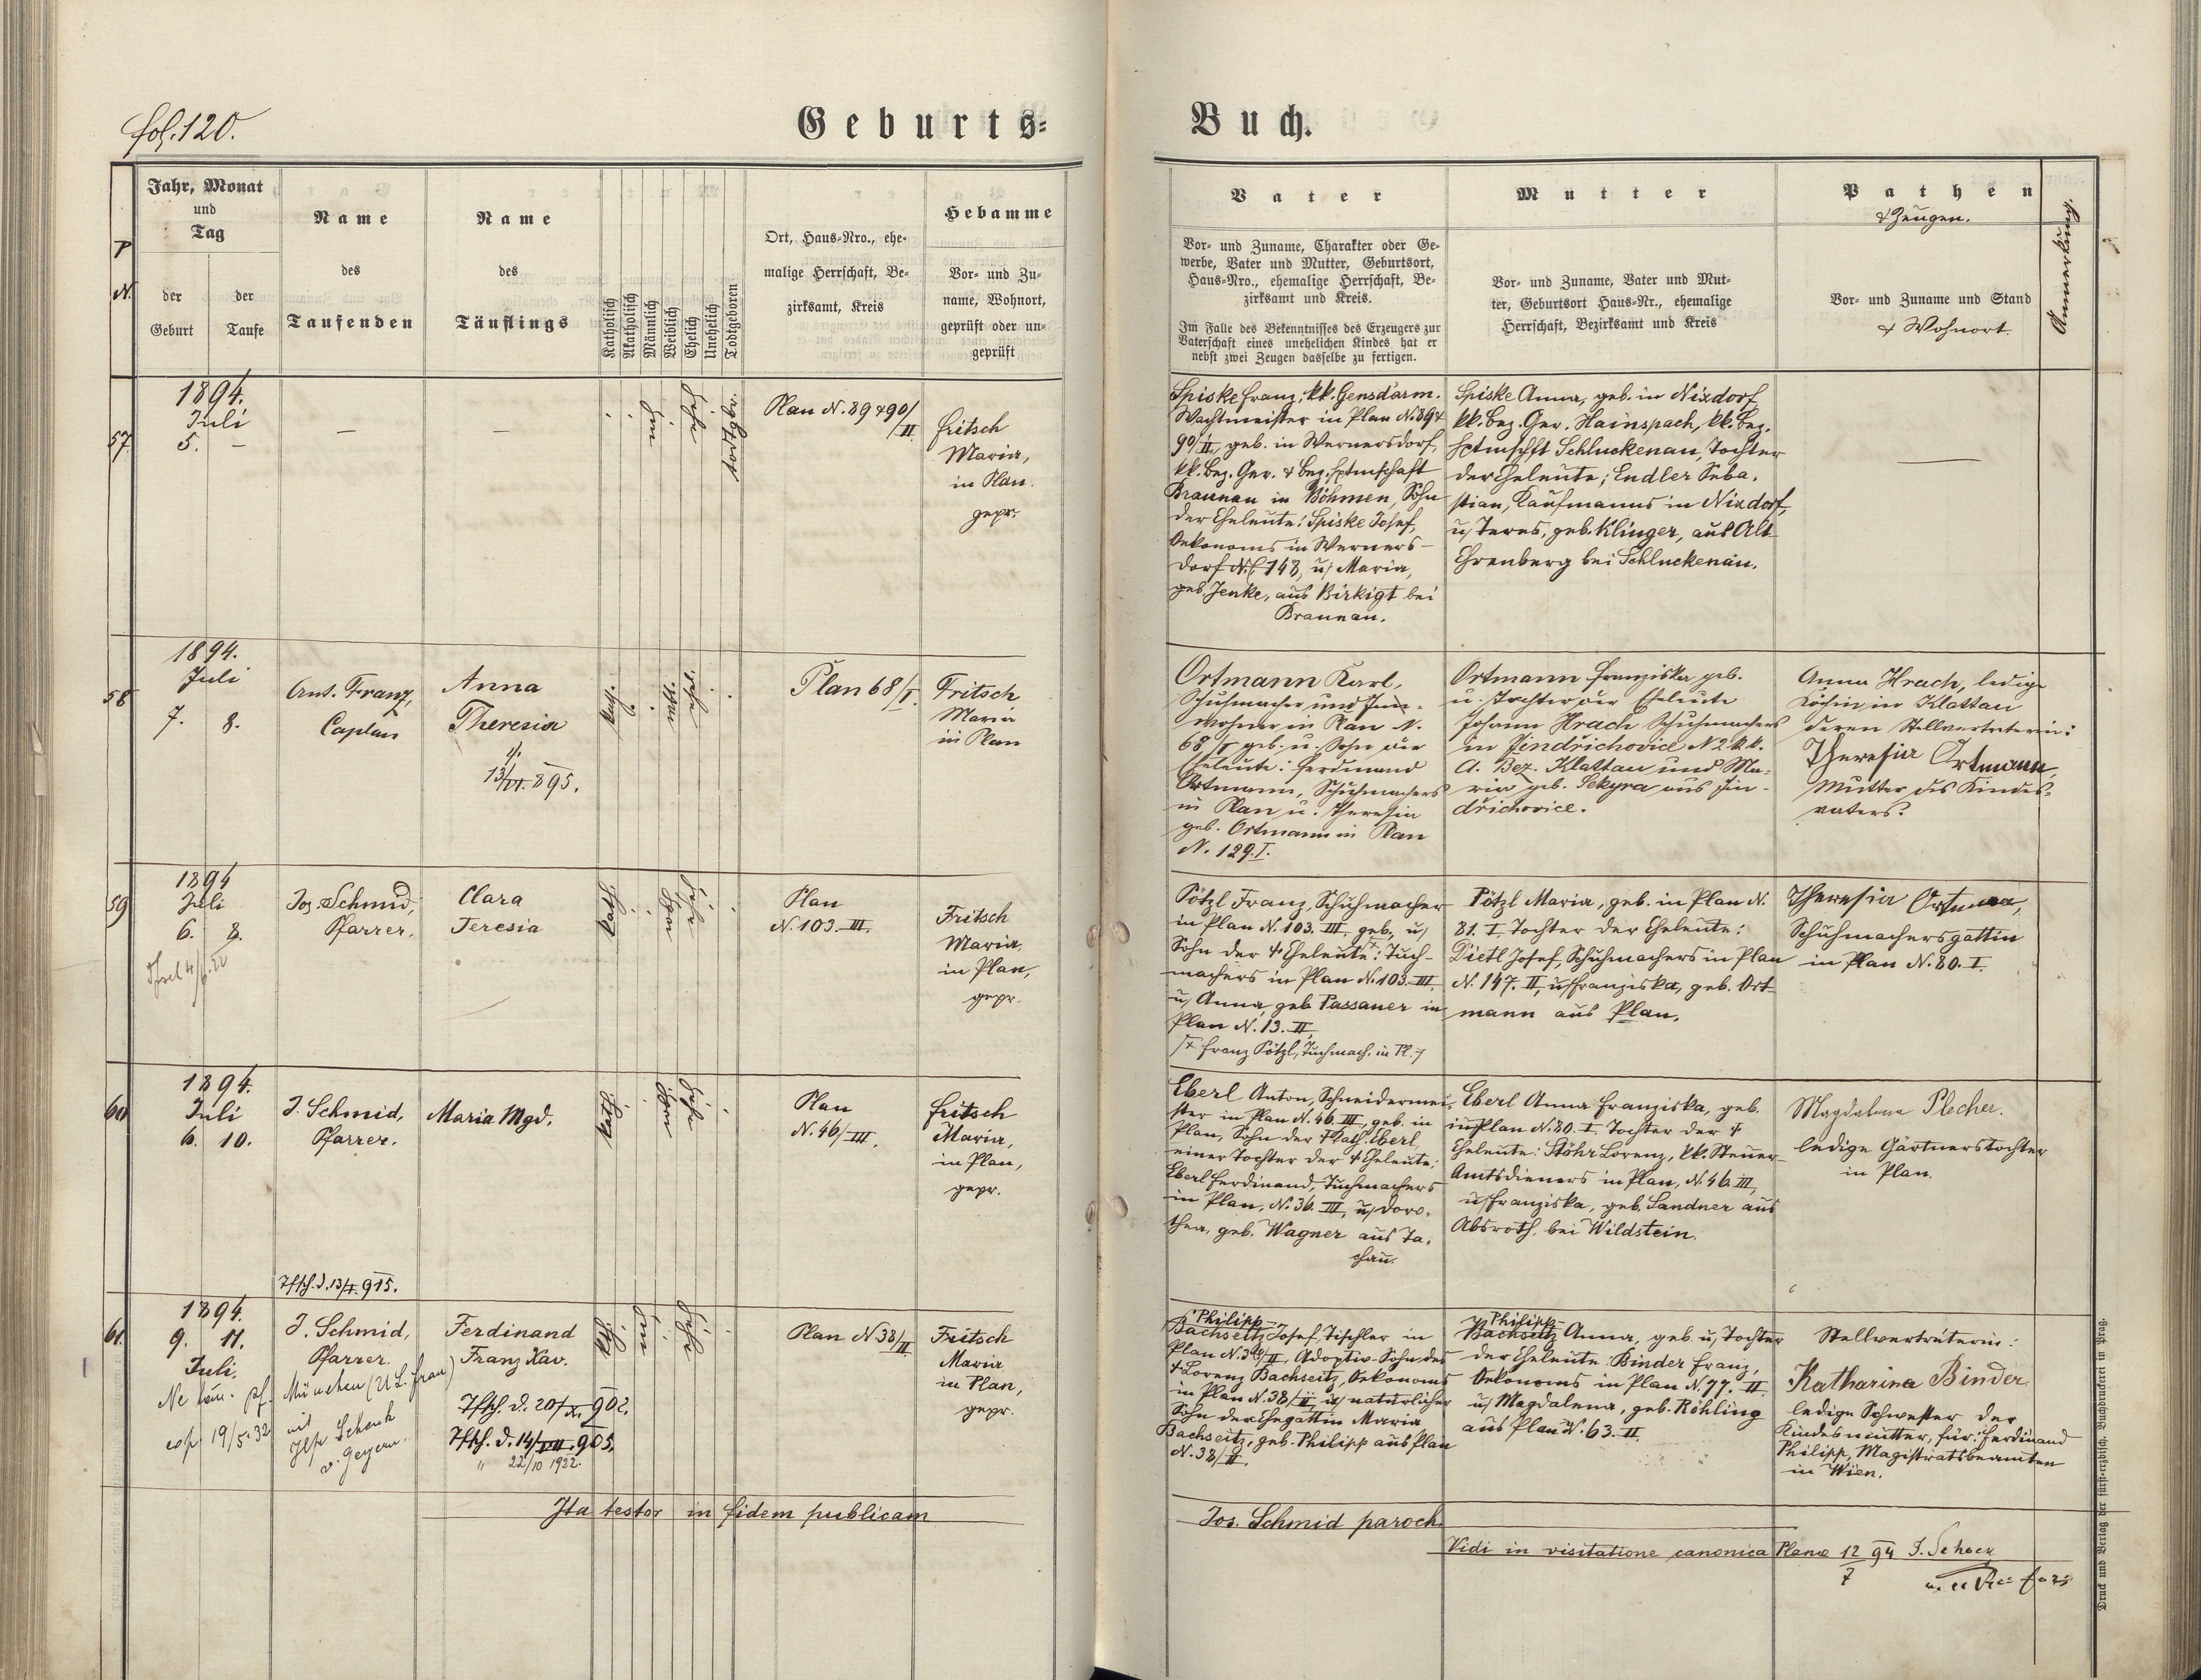 fol. 120.
Geburts-
Buch.
P
N.
Jahr, Monat
und
Tag
der
Geburt
der
Taufe
Name
des
Taufenden
Name
des
Täuflings
Katholisch
Akatholisch
Männlich
Weiblich
Ehelich
Unehelich
Todtgeboren
Ort, Haus-Nro., ehe-
malige Herrschaft, Be-
zirksamt, Kreis
Hebamme
Vor- und Zu-
name, Wohnort,
geprüft oder un-
geprüft
Vater
Vor- und Zuname, Charakter oder Ge-
werbe, Vater und Mutter, Geburtsort,
Haus-Nro., ehemalige Herrschaft, Be-
zirksamt und Kreis.
Im Falle des Bekenntnisses des Erzeugers zur
Vaterschaft eines unehelichen Kindes hat er
nebst zwei Zeugen dasselbe zu fertigen.
Mutter
Vor- und Zuname, Vater und Mut-
ter, Geburtsort Haus-Nr., ehemalige
Herrschaft, Bezirksamt und Kreis
Pathen
& Zeugen.
Vor- und Zuname und Stand
& Wohnort
Anmerkung.
57.
1894.
Juli
5. –
–
–
todtgb.
Plan N. 89 & 90/
/II.
Fritsch
Maria,
in Plan.
gepr.
Spiske Franz, kk. Gensdarm.
Wachtmeister in Plan N. 89 &
90/II, geb. in Wernersdorf,
kk. Bez. Ger. & Bez. Hptmschaft
Braunau in Böhmen, Sohn
der Eheleute: Spiske Josef,
Oekonoms in Werners-
dorf N. 148, u/ Maria,
geb. Jenke, aus Birkigt bei
Braunau.
Spiske Anna, geb. in Nixdorf,
kk. Bez. Ger. Hainspach, kk. Bez.
Hptmschft Schluckenau, Tochter
der Eheleute; Endler Seba-
stian, Kaufmanns in Nixdorf,
u/ Teres, geb. Klinger, aus Alt
Ehrenberg bei Schluckenau.
58
1894.
Juli
7. 8.
Ant. Franz,
Caplan
Anna
Theresia
13/VI. 895.
Plan 68/I.
Fritsch
Maria
in Plan
Ortmann Karl,
Schuhmacher und Inn-
wohner in Plan N.
68/I geb. u. Sohn der
Eheleute: Ferdinand
Ortmann, Schuhmachers
in Plan u. Theresia
geb. Ortmann in Plan
N. 129. I.
Ortmann Franziska geb.
u. Tochter der Eheleute
Johann Hrach Schuhmachers
in Jindřichovice N 2 k.k.
A. Bez. Klattau und Ma-
ria geb. Sekyra aus Jin-
dřichovice.
Anna Hrach, ledige
Köchin in Klattau
deren Stellvertreterin:
Theresia Ortmann,
Mutter des Kindes-
vaters.
59
1894
Juli
6. 8.
Jos. Schmid,
Pfarrer.
Clara
Teresia
kath
Plan
N. 103. III.
Fritsch
Maria,
in Plan,
gepr.
Pötzl Franz, Schuhmacher
in Plan N. 103. III. geb., u/
Sohn der † Eheleute: Tuch-
machers in Plan N. 103. III.
u/ Anna, geb. Passauer in
Plan N. 13. II.
/× Franz Pötzl, Tuchmach. in Pl. /
Pötzl Maria, geb. in Plan N.
81. I. Tochter der Eheleute:
Dietl Josef, Schuhmachers in Plan
N. 147. II, u/ Franziska, geb. Ort-
mann aus Plan.
Theresia Ortmann,
Schuhmachersgattin
in Plan N. 80. I.
60
1894.
Juli
6. 10.
J. Schmid,
Pfarrer.
Maria Mgd.
kath
Plan
N. 46/III.
Fritsch
Maria,
in Plan,
gepr.
Eberl Anton, Schneidermei-
ster in Plan N. 46. III, geb. in
Plan, Sohn der † Kath. Eberl
einer Tochter der † Eheleute:
Eberl Ferdinand, Tuchmachers
in Plan, N. 36. III, u/ Doro-
thea, geb. Wagner aus Ta-
chau.
Eberl Anna Franziska, geb.
in Plan N. 80. I. Tochter der †
Eheleute: Stöhr Lorenz, kk. Steuer-
Amtsdieners in Plan, N. 46. III,
u/ Franziska, geb. Sandner aus
Absroth, bei Wildstein.
Magdalena Plecher.
ledige Gärtnerstochter
in Plan.
Tfsch. d. 13/I. 915.
61.
1894.
9. 11.
Juli.
J. Schmid,
Pfarrer.
Ferdinand
Franz Xav.
Tfsch. d. 20/X. 902.
Tfsch. d. 14/VIII. 905.
" 22/10 1922.
München (U. L. Frau)
19/5. 32
mit
Schenk
v. Geyern.
Plan N 38/II
Fritsch
Maria
in Plan,
gepr.
Philipp-
Bachseitz Josef, Tischler in
Plan N. 38/II, Adoptiv-Sohn des
† Lorenz Bachseitz, Oekonoms
in Plan N. 38/II, u/ natürlicher
Sohn der Ehegattin Maria
Bachseitz, geb. Philipp aus Plan
N. 38/II.
Philipp-
Bachseitz Anna, geb. u/ Tochter
der Eheleute: Binder Franz,
Oekonoms in Plan N. 77. II
u/ Magdalena, geb. Röhling
aus Plan N. 63. II.
Stellvertreterin:
Katharina Binder
ledige Schwester der
Kindesmutter, für: Ferdinand
Philipp, Magistratsbeamten
in Wien.
Ita testor in fidem publicam
Jos. Schmid paroch.
Vidi in visitatione canonica Planae 12/7 94
Druck und Verlag der fürst-erzbisch. Buchdruckerei in Prag.